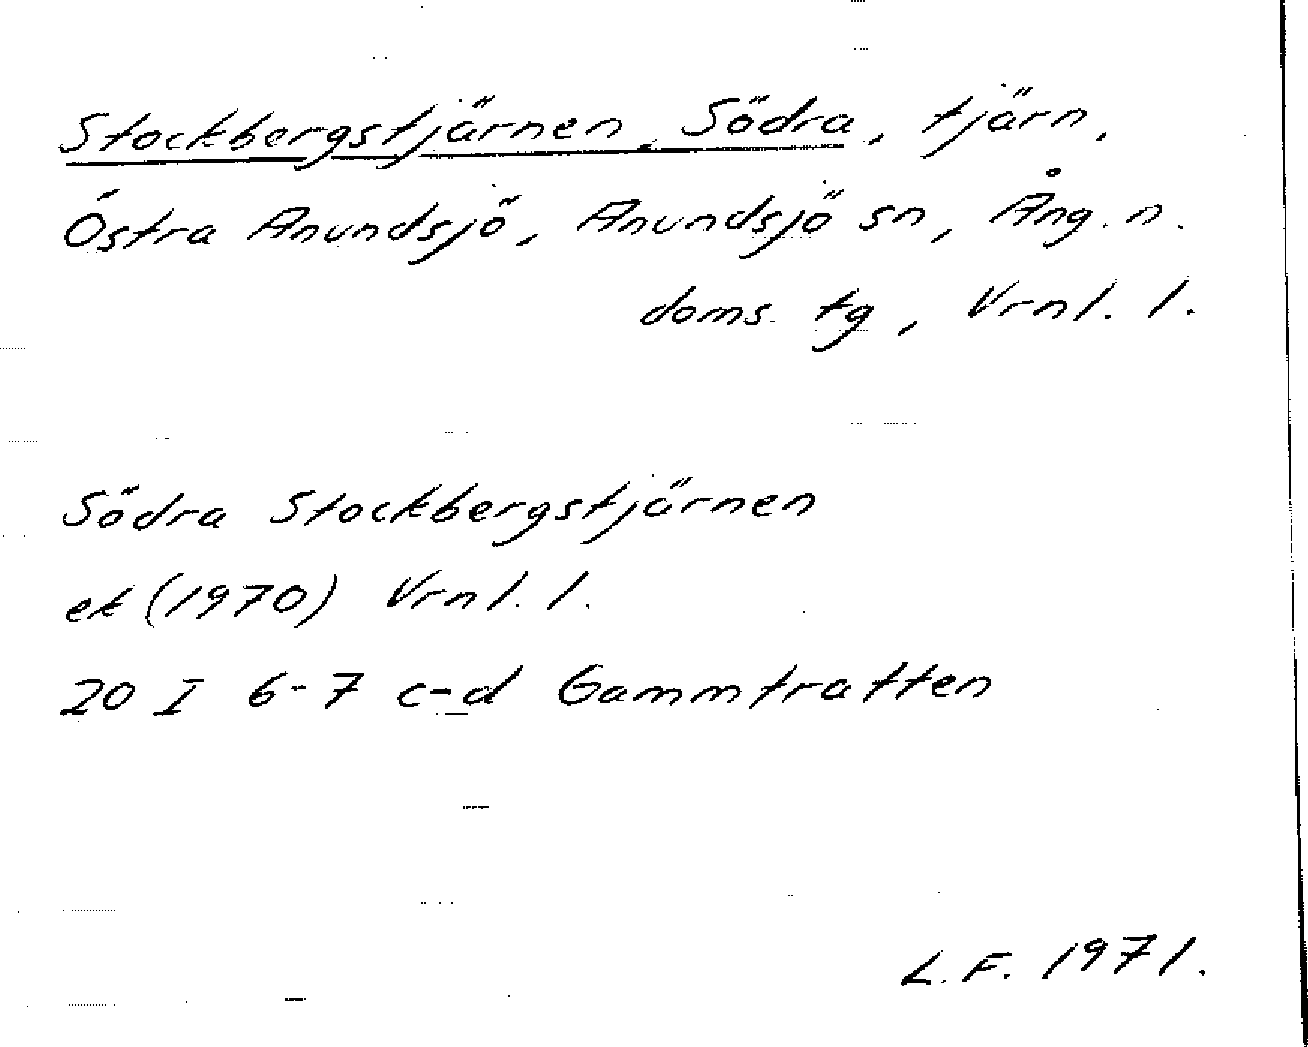 Stockbergstjärnen, Södra, tjärn,
Östra Anundsjö, Anundsjö sn, Ång. n.
doms. tg, Vrnl. l.
Södra Stockbergstjärnen
ek (1970) Vrnl. l.
20 I 6-7 c-d Gammtratten
L. F. 1971.